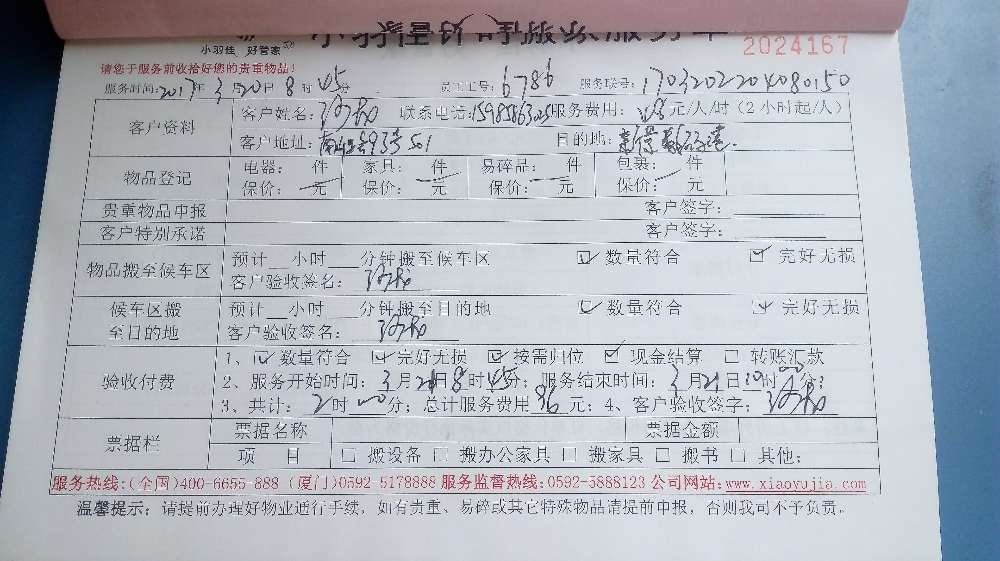 小羽佳 好管家
2024167
请您于服务前收拾好您的贵重物品!
服务时间:2017年3月20日8时45分 员工工号:6786 服务联号:1703202204080150
客户资料
客户姓名: 联系电话: 服务费用:48元/人/时(2小时起/人)
客户地址: 501 目的地:
物品登记
电器: 件 家具: 件 易碎品: 件 包裹: 件
保价: 元 保价: 元 保价: 元 保价: 元
贵重物品申报 客户签字:
客户特别承诺 客户签字:
物品搬至候车区
预计 小时 分钟搬至候车区 ☑数量符合 ☑完好无损
客户验收签名:
候车区搬至目的地
预计 小时 分钟搬至目的地 ☑数量符合 ☑完好无损
客户验收签名:
验收付费
1、☑数量符合 ☑完好无损 ☑按需归位 ☑现金结算 □转账汇款
2、服务开始时间:3月 日8时45分;服务结束时间:3月21日10时 分;
3、共计:2时 分;总计服务费用96元;4、客户验收签字:
票据栏
票据名称 票据金额
项 目 □搬设备 □搬办公家具 □搬家具 □搬书 □其他:
服务热线:(全国)400-6655-888 (厦门)0592-5178888 服务监督热线:0592-5888123 公司网站:www.xiaoyujia.com
温馨提示:请提前办理好物业通行手续,如有贵重、易碎或其它特殊物品请提前申报,否则我司不予负责。